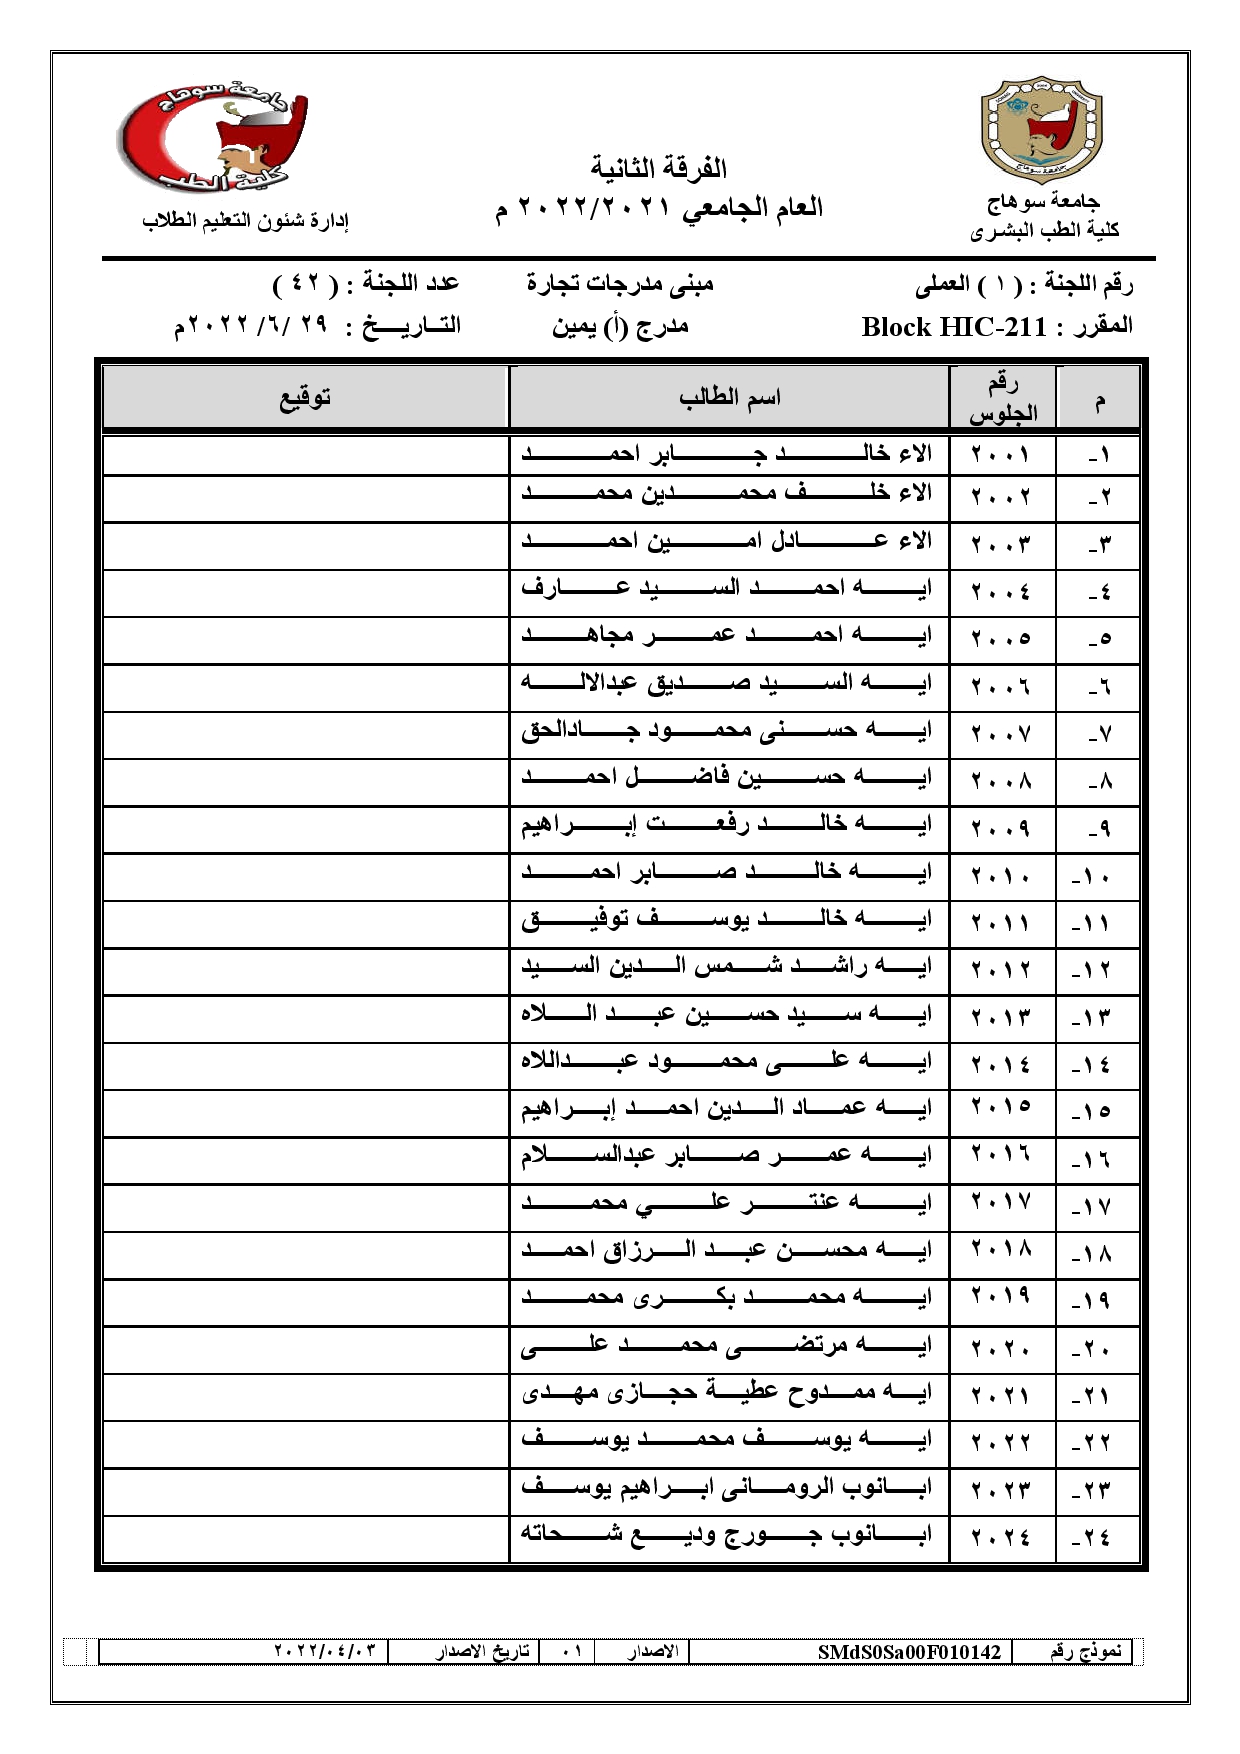 جامعة سوهاج
كلية الطب
جامعة سوهاج
الفرقة الثانية
العام الجامعي ٢٠٢٢/٢٠٢١ م
جامعة سوهاج
كلية الطب البشرى
إدارة شئون التعليم الطلاب
رقم اللجنة : ( ١ ) العملى مبنى مدرجات تجارة عدد اللجنة : ( ٤٢ )
المقرر : Block HIC-211 مدرج (أ) يمين التاريخ : ٢٩ /٦/ ٢٠٢٢م
م رقم الجلوس اسم الطالب توقيع
١- ٢٠٠١ الاء خالد جابر احمد
٢- ٢٠٠٢ الاء خلف محمدين محمد
٣- ٢٠٠٣ الاء عادل امين احمد
٤- ٢٠٠٤ ايه احمد السيد عارف
٥- ٢٠٠٥ ايه احمد عمر مجاهد
٦- ٢٠٠٦ ايه السيد صديق عبدالاله
٧- ٢٠٠٧ ايه حسنى محمود جادالحق
٨- ٢٠٠٨ ايه حسين فاضل احمد
٩- ٢٠٠٩ ايه خالد رفعت إبراهيم
١٠- ٢٠١٠ ايه خالد صابر احمد
١١- ٢٠١١ ايه خالد يوسف توفيق
١٢- ٢٠١٢ ايه راشد شمس الدين السيد
١٣- ٢٠١٣ ايه سيد حسين عبد الـلاه
١٤- ٢٠١٤ ايه على محمود عبداللاه
١٥- ٢٠١٥ ايه عماد الدين احمد إبراهيم
١٦- ٢٠١٦ ايه عمر صابر عبدالسلام
١٧- ٢٠١٧ ايه عنتر علي محمد
١٨- ٢٠١٨ ايه محسن عبد الرزاق احمد
١٩- ٢٠١٩ ايه محمد بكرى محمد
٢٠- ٢٠٢٠ ايه مرتضى محمد على
٢١- ٢٠٢١ ايه ممدوح عطية حجازى مهدى
٢٢- ٢٠٢٢ ايه يوسف محمد يوسف
٢٣- ٢٠٢٣ ابانوب الرومانى ابراهيم يوسف
٢٤- ٢٠٢٤ ابانوب جورج وديع شحاته
نموذج رقم SMdS0Sa00F010142 الاصدار ٠١ تاريخ الاصدار ٢٠٢٢/٠٤/٠٣